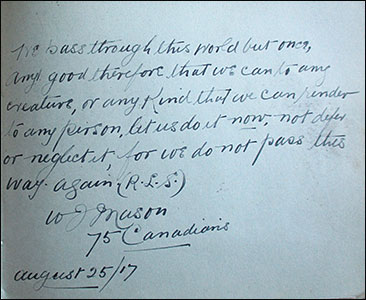 We pass through this world but once,
any good therefore that we can to any
creature, or any kind that we can render
to any person, let us do it now; not defer
or neglect it, for we do not pass this
way again, (R.L.S.)
W J Mason
75 Canadians
august 25/17